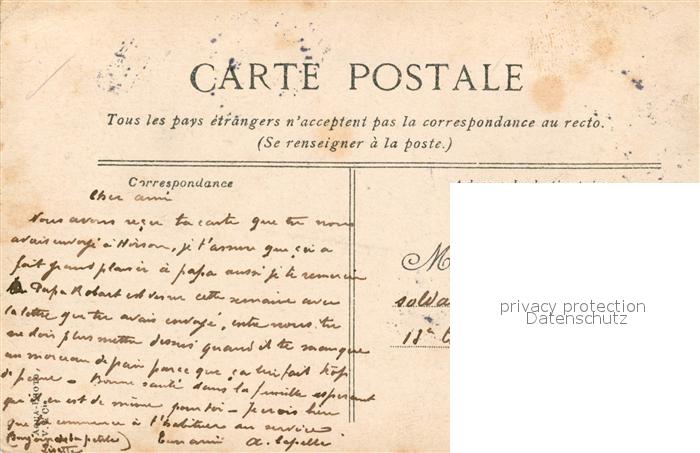 CARTE POSTALE
Tous les pays étrangers n'acceptent pas la correspondance au recto.
(Se renseigner à la poste.)
Correspondance
Cher ami
Nous avons reçu ta carte que tu nous
avais envoyé à Hirson, je t'assure que ça a
fait grand plaisir à papa aussi je te remercie
Papa Robart est venu cette semaine avec
la lettre que tu avais envoyé, entre nous tu
ne dois plus mettre dessus quand il te manque
un morceau de pain parce que ça lui fait trop
de peine - Bonne santé dans la famille esperant
qu'il en est de même pour toi - je crois bien
que tu commence à t'habituer au service
(Bonjour de la petite) Ton ami
M
solda
privacy protection
Datenschutz